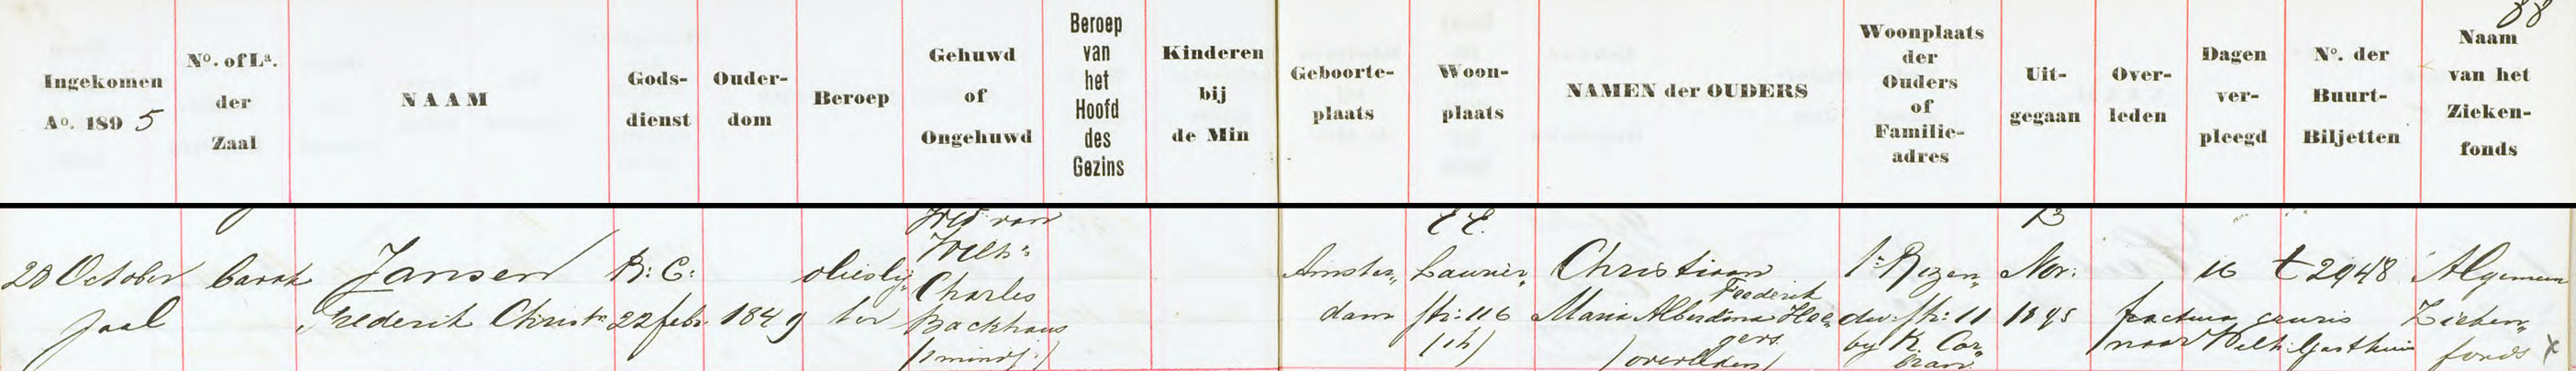 88
Ingekomen
Ao. 1895
No. of La.
der
Zaal
NAAM
Gods-
dienst
Ouder-
dom
Beroep
Gehuwd
of
Ongehuwd
Beroep
van
het
Hoofd
des
Gezins
Kinderen
bij
de Min
Geboorte-
plaats
Woon-
plaats
NAMEN der OUDERS
Woonplaats
der
Ouders
of
Familie-
adres
Uit-
gegaan
Over-
leden
Dagen
ver-
pleegd
No. der
Buurt-
Biljetten
Naam
van het
Zieken-
fonds
28 October
Barak
zaal
Jansen
Frederik Christn
R: C:
22 febr. 1849
olieslij„
ter
Wed van
Wilhn
Charles
Backhaus
(1 mindj:)
Amster„
dam
EE.
Laurier„
str: 116
(1h)
Christiaan
Frederik
Maria Alberdina Hae„
gers
(overleden)
1e Rozen„
dw: str: 11
by K. Cor„
13
Nov:
1895
16
t 2948
fractura cruris
naar Wilh Gasthuis
Algemeen
Zieken„
fonds x